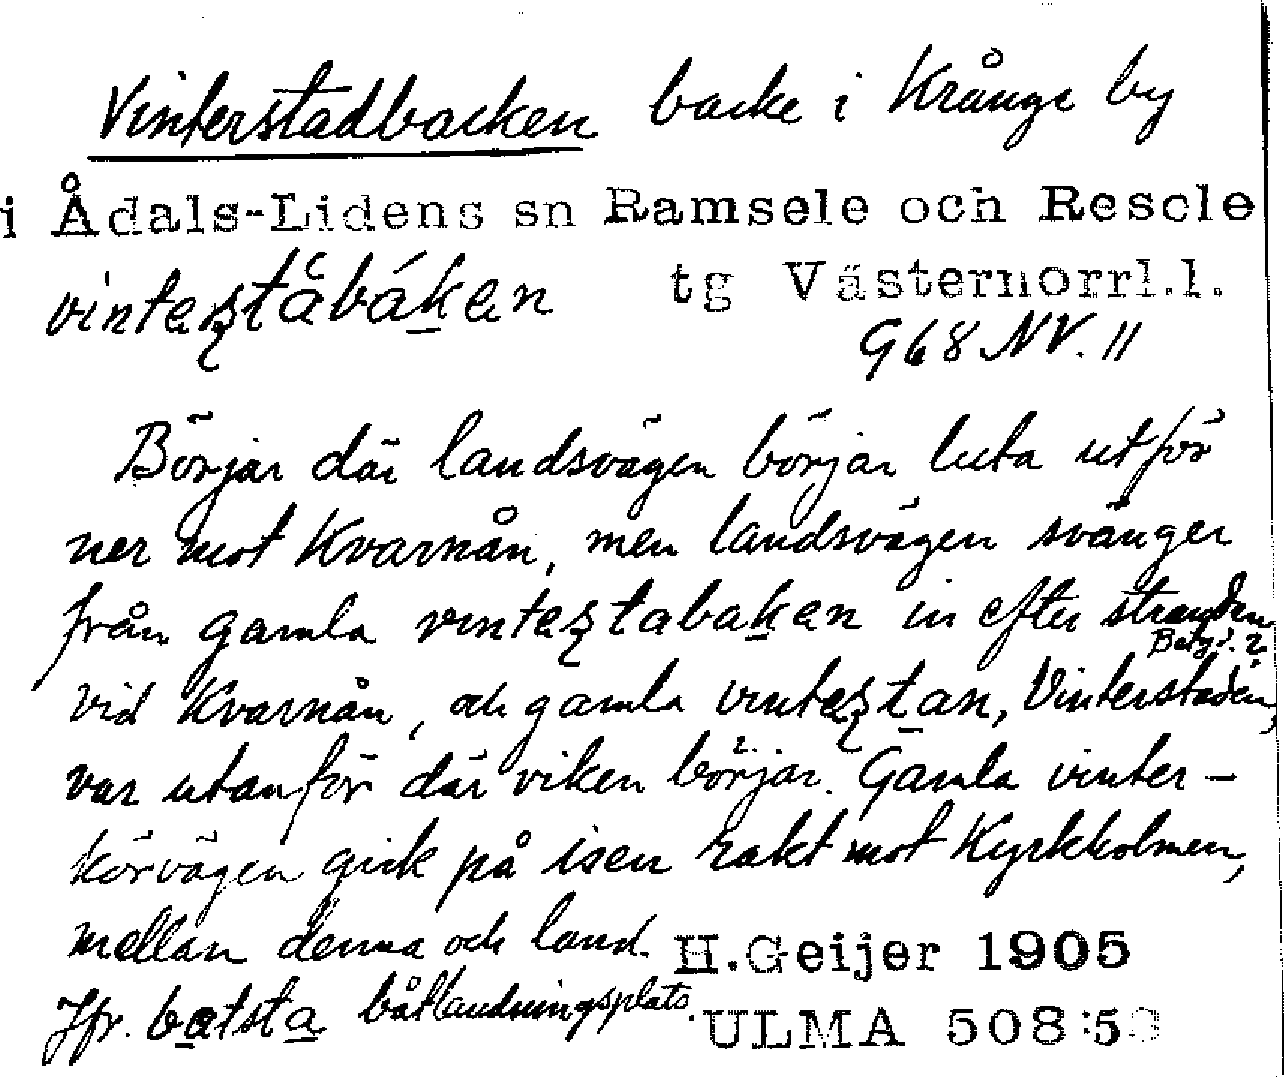 Vinterstadbacken backe i Krånge by
i Ådals-Lidens sn Ramsele och Resele
vintesta̱båḵen tg Västernorrl.l.
G68 NV. 11
Börjar där landsvägen börjar luta utför
ner mot Kvarnån, men landsvägen svänger
från gamla vintestabaḵen in efter stranden
vid Kvarnån, och gamla vintesta̱n, Vinterstaden,
var utanför där viken börjar. Gamla vinter-
körvägen gick på isen rakt mot Kyrkholmen,
mellan denna och land. H.Geijer 1905
Jfr. ba̱tsta̱ båtlandningsplats. ULMA 508:5